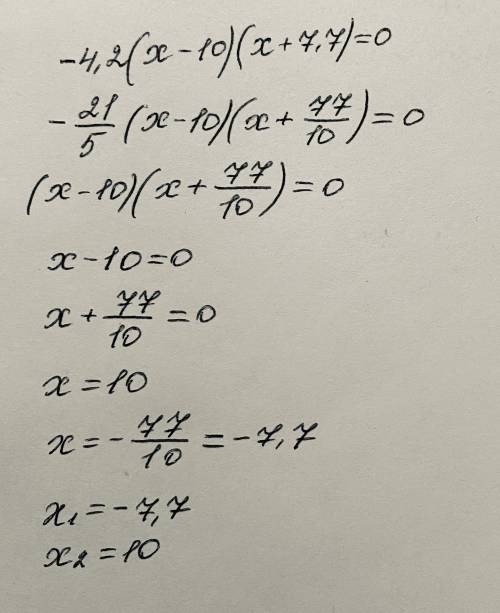 -4,2(x-10)(x+7,7)=0
-21/5(x-10)(x+77/10)=0
(x-10)(x+77/10)=0
x-10=0
x+77/10=0
x=10
x=-77/10=-7,7
x₁=-7,7
x₂=10